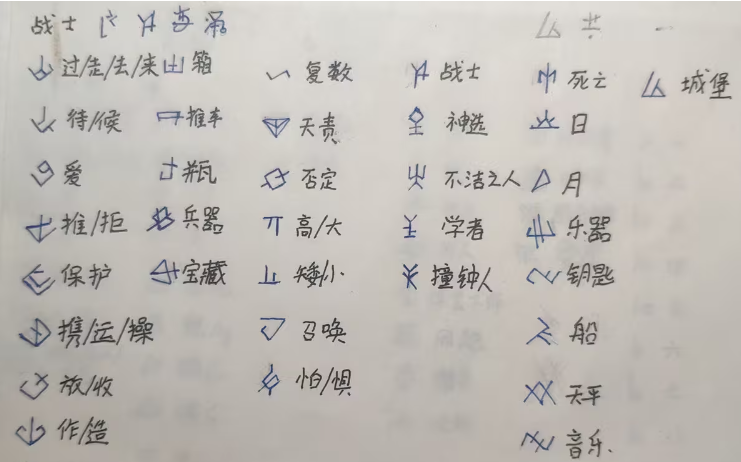 战士
过/走/去/来 箱 复数 战士 死亡 城堡
待/候 推车 天责 神选 日
爱 瓶 否定 不洁之人 月
推/拒 兵器 高/大 学者 乐器
保护 宝藏 矮小 撞钟人 钥匙
携/运/操 召唤 船
放/收 怕/惧 天平
作/造 音乐